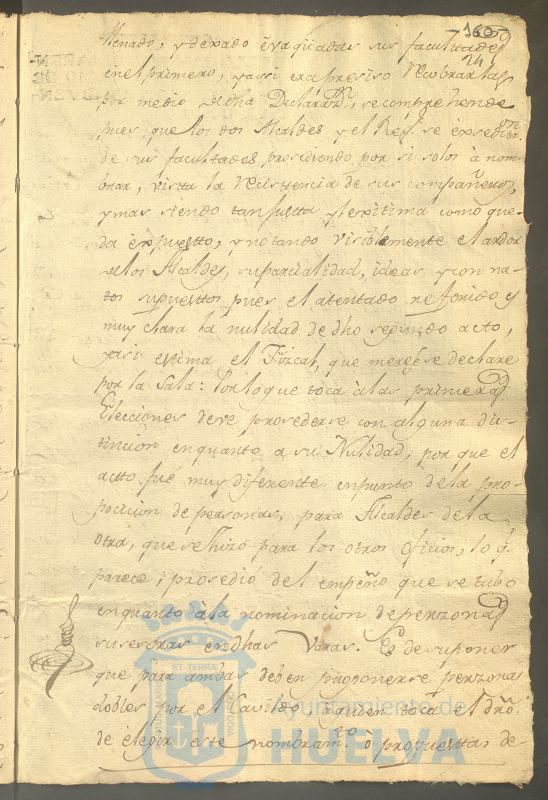 160
24
llenado, y dexado evaquadas sus facultades
en el primero, y assi era presiso recobrarlas
por medio de dha Declarazn, se comprehende
pues que los dos Alcaldes y el Rexr se exsedieron
de sus facultades prosidiendo por si solos à nom-
brar, vista la resistencia de sus compañeros,
y mas siendo tan justa y lexitima como que-
da expuesto, y notando visiblemente el ardor
de los Alcaldes, su parcialidad, ideas, y con na-
tos supuestos pues el atentado referido y
muy clara la nulidad de dho segundo acto,
y assi estima el Fiscal, que merese se declare
por la Sala: Por lo que toca à las primeras
Elecciones deve prosederse con alguna dis-
tincion en quanto a su Nulidad, por que el
acto fué muy diferente en punto de la pro-
posicion de personas, para Alcaldes de la
otra, que se hizo para los otros oficios, lo q.
parece, prosedio del empeño que se tubo
en quanto à la nominacion de perzonas
en dhas Varas. Es de suponer
que para ambas deben proponerse perzonas
dobles por el Cavildo, a quien toca el dro.
de elegir este nombramto. ò propuesta, de-
ET TERRÆ
Ayuntamiento de
HUELVA